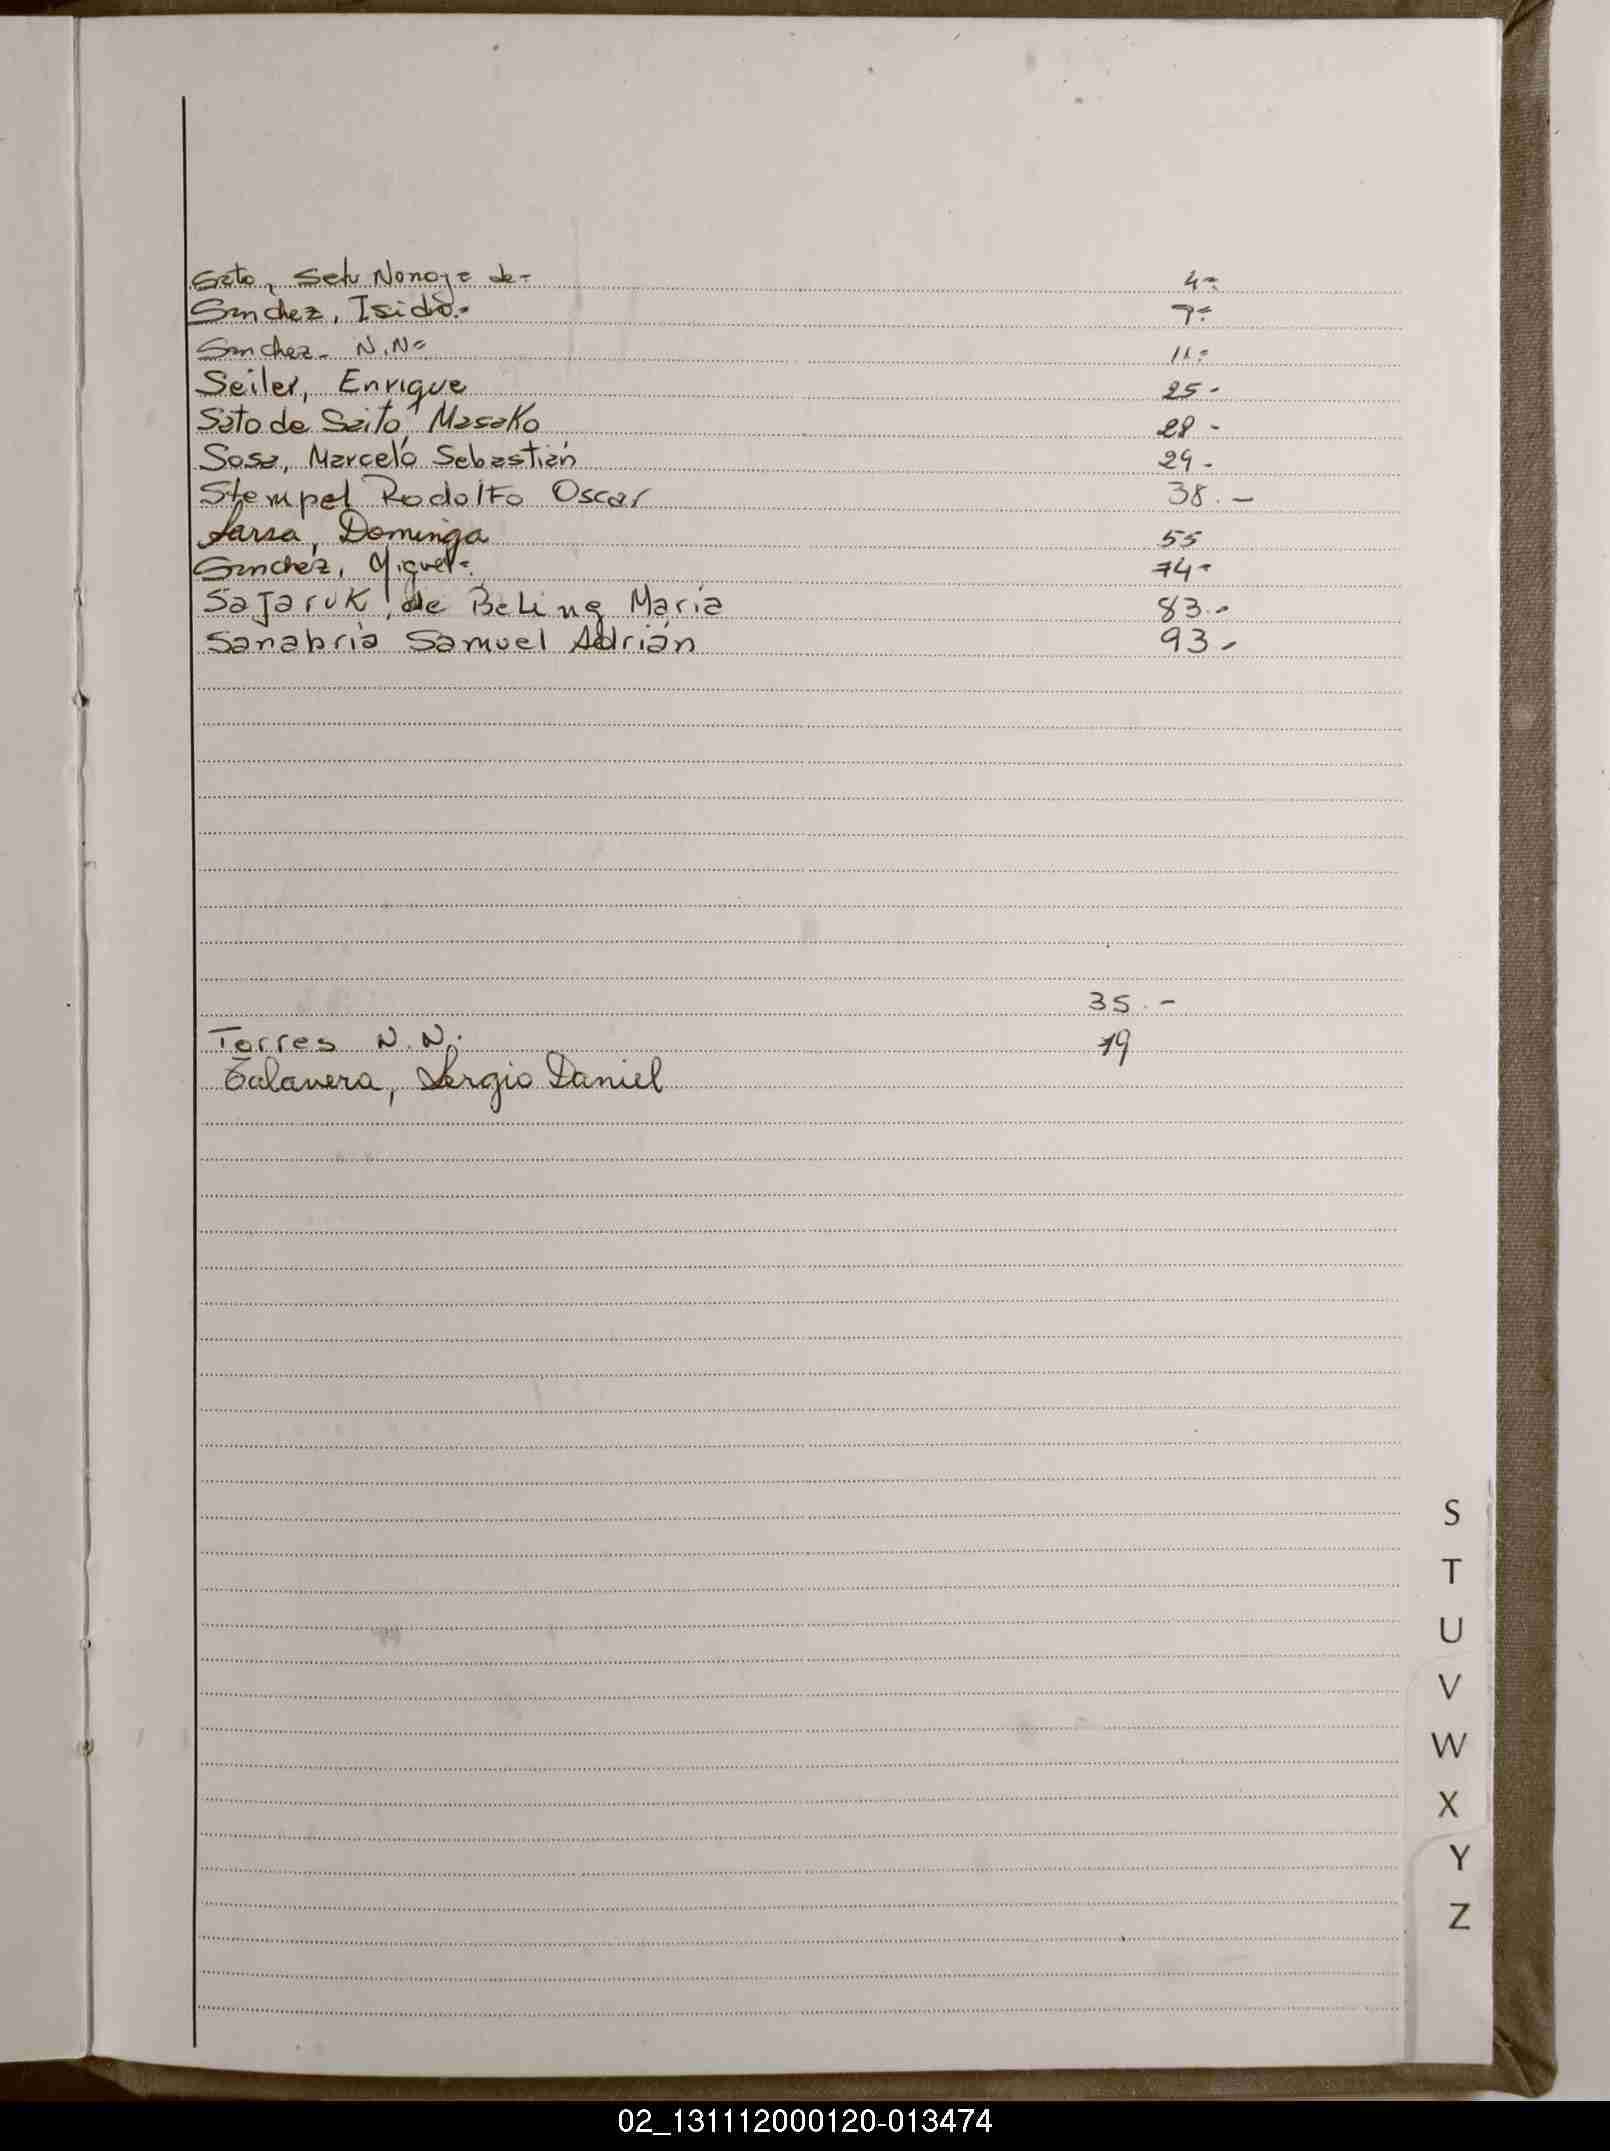 Sato, Setu Nonoy= de= 4=
Sanchez, Isidro.= 7=
Sanchez- N.N= 11=
Seiler, Enrique 25-
Sato de Saito, Masako 28-
Sosa, Marcelo Sebastián 29-
Stempel Rodolfo Oscar 38.-
Sarsa, Dominga 55
Sanchez, Miguel=. 74-
Sajaruk, de Beling María 83.-
Sanabria Samuel Adrián 93-
35.-
Torres N.N. 79
Talavera, Sergio Daniel
S
T
U
V
W
X
Y
Z
02_131112000120-013474